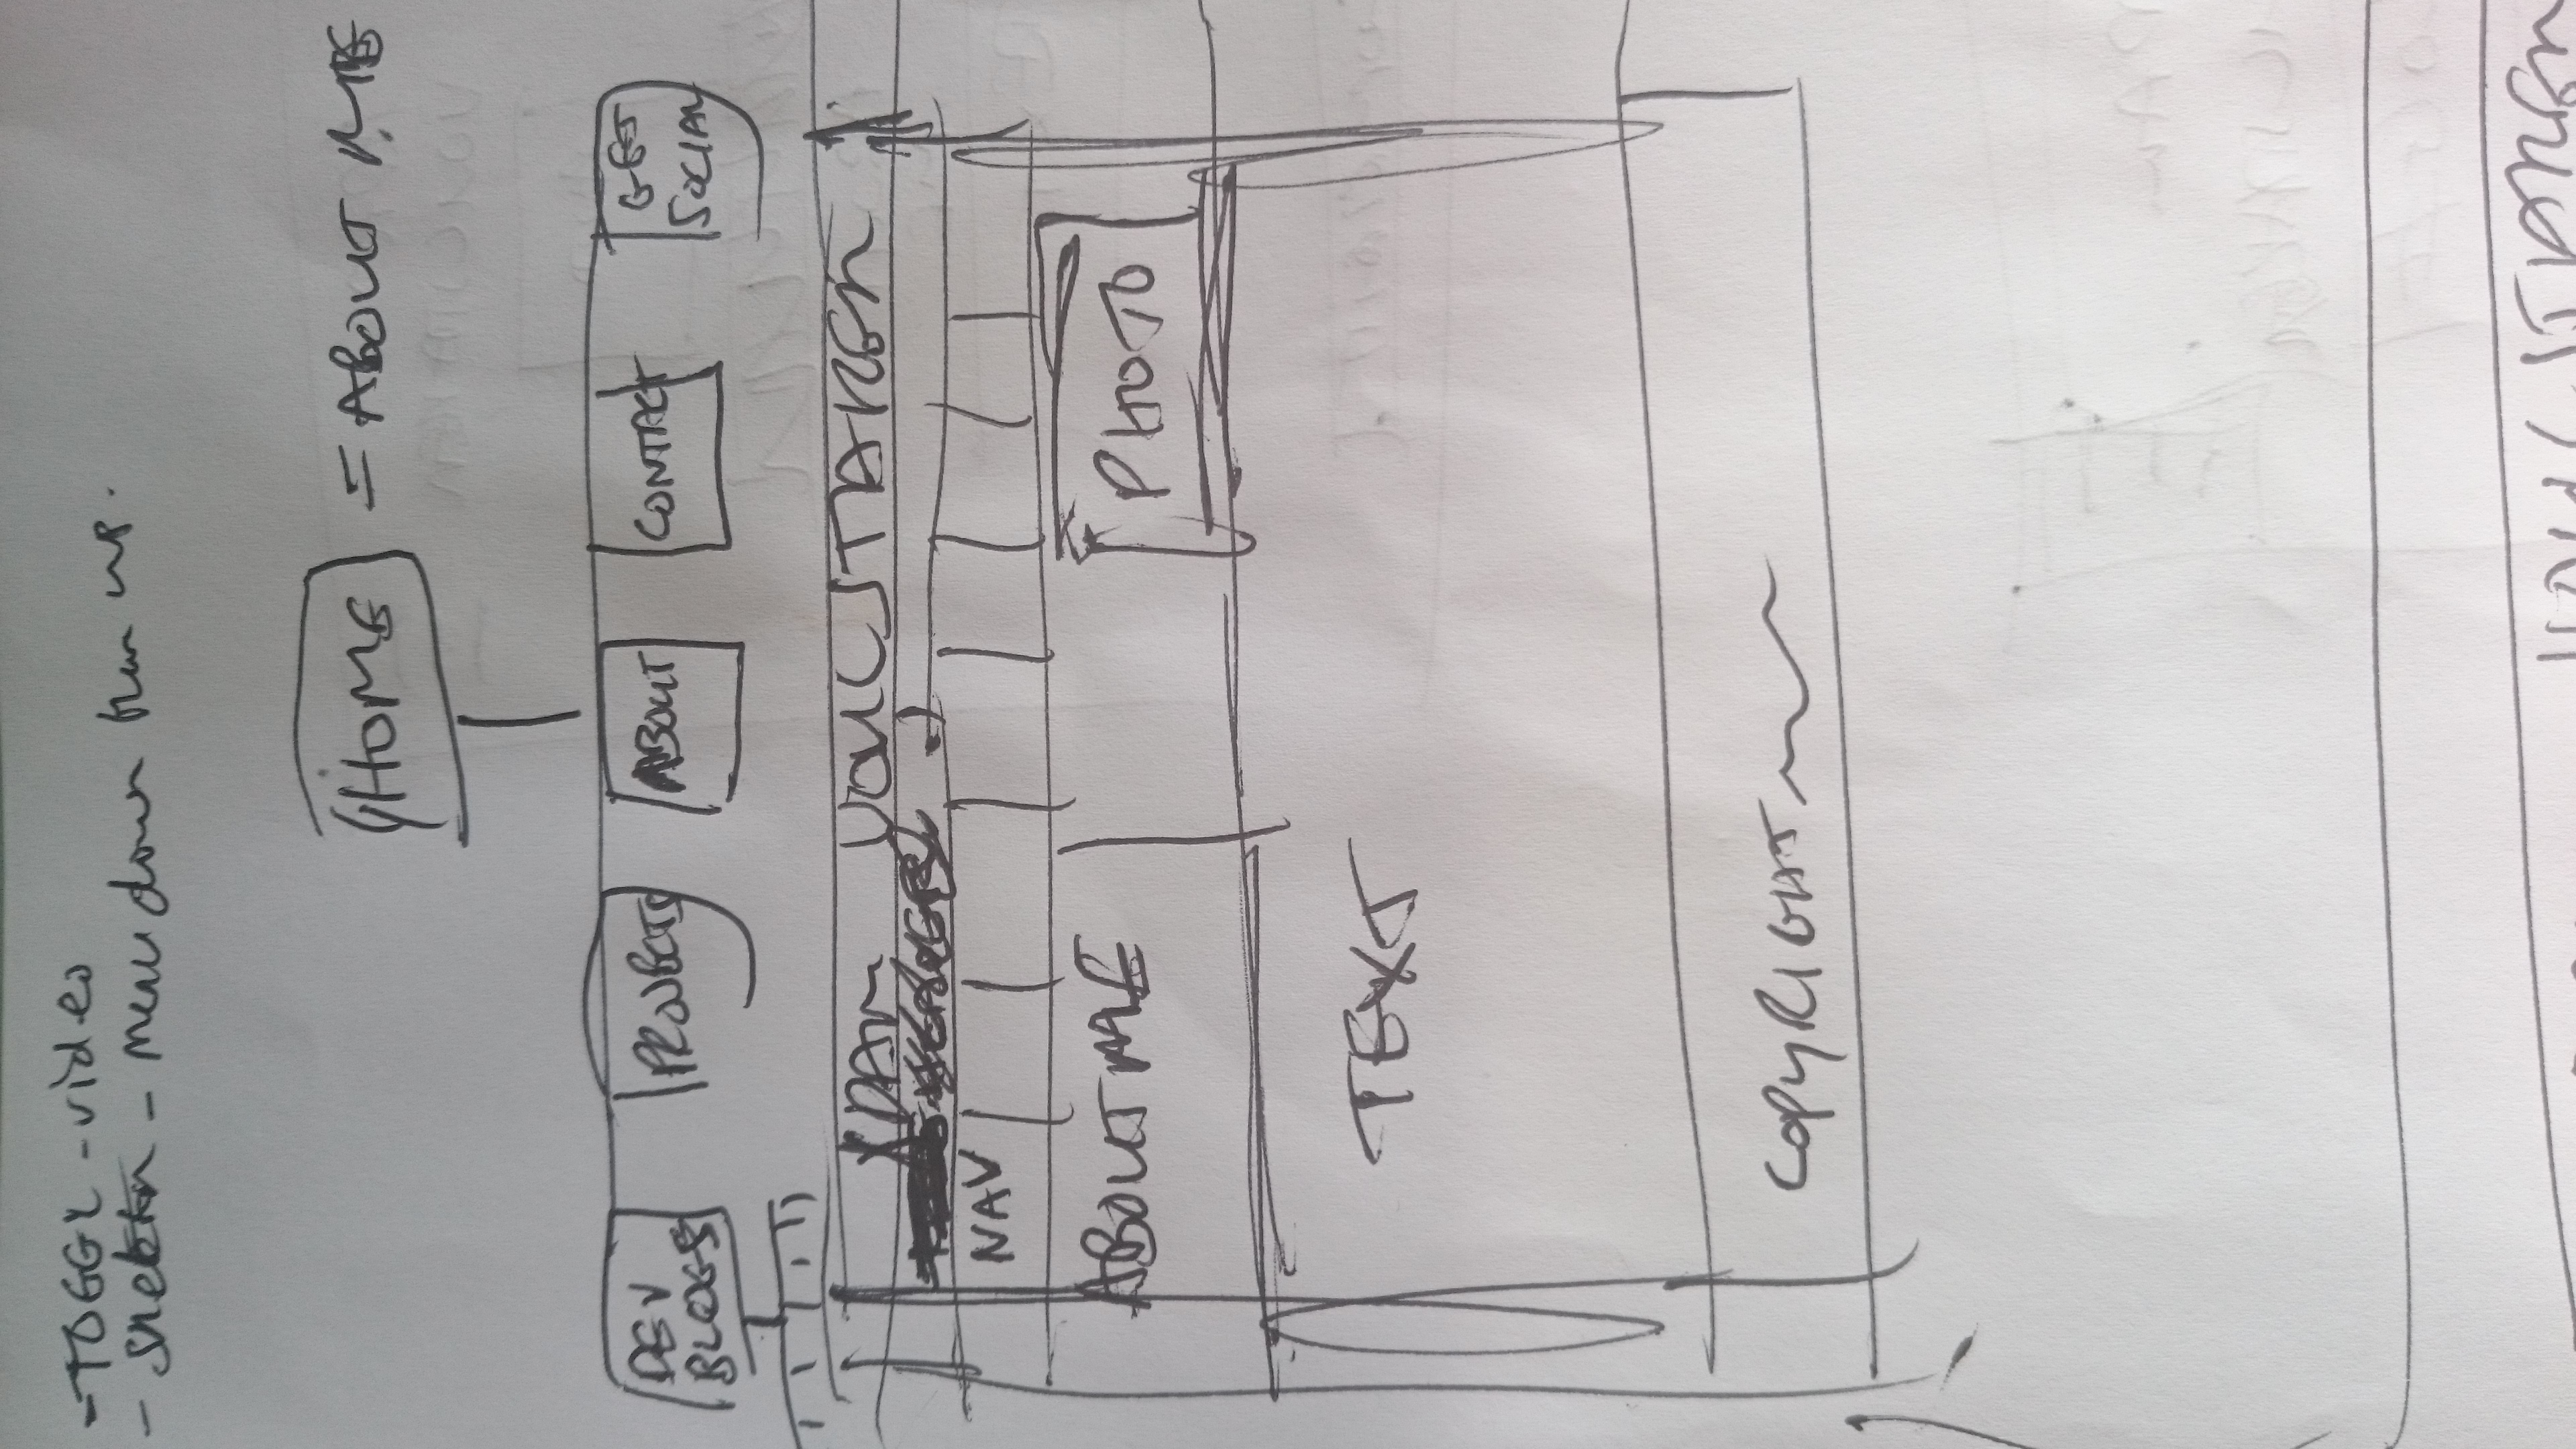 - TOGGL - video
- Skeleton - Menu down than up.
HOME = ABOUT ME
DEV BLOGS
PROJECTS
ABOUT
CONTACT
GET SOCIAL
ADAM VOLCSTAREN
HEADER
NAV
ABOUT ME
PHOTO
TEXT
COPYRIGHT